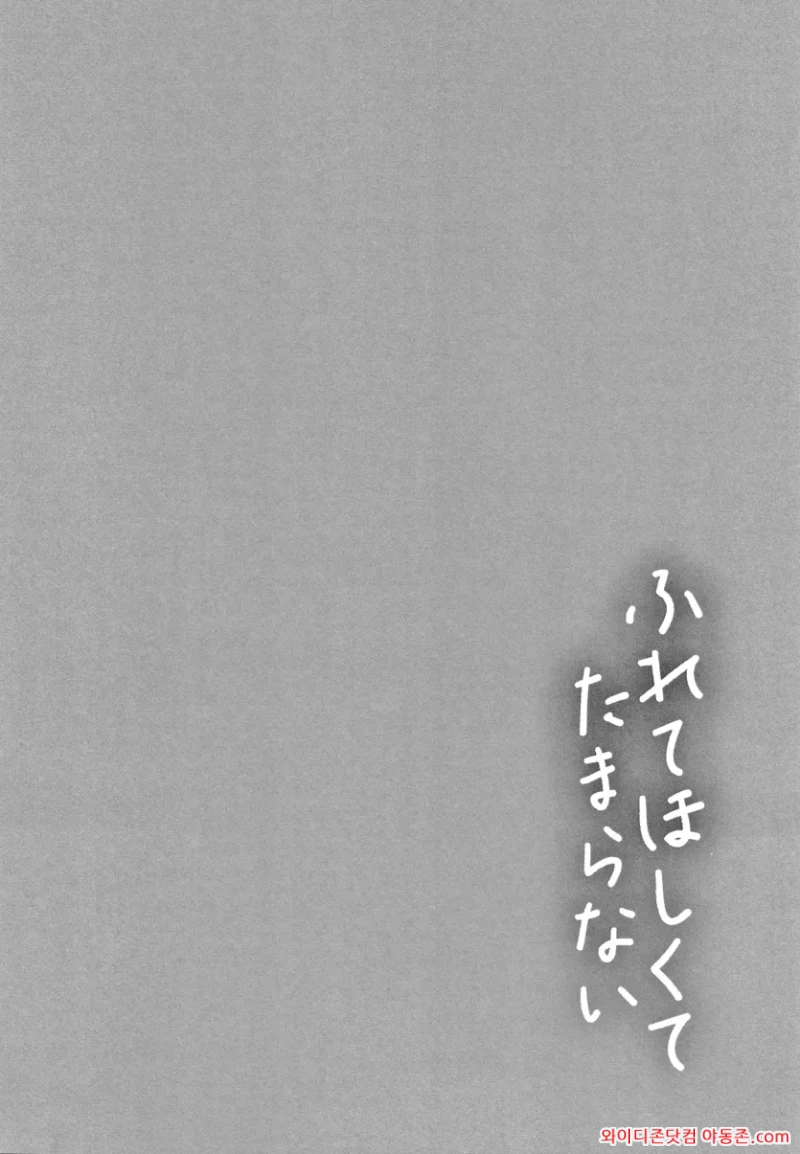 ふれてほしくて
たまらない
와이디존닷컴 아동존.com